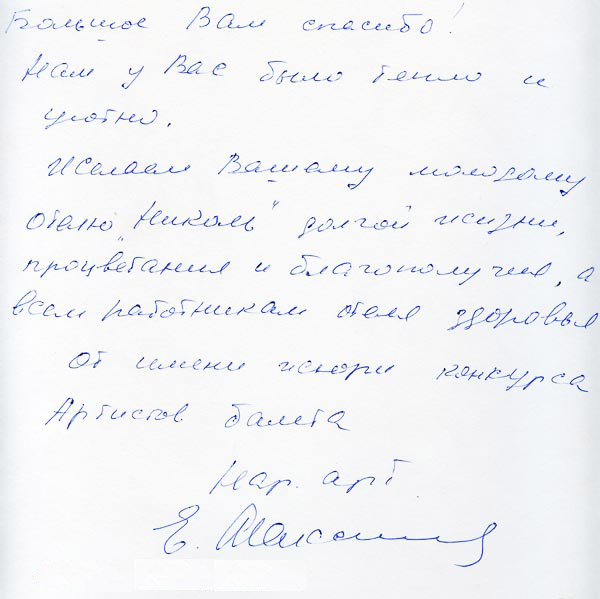 Большое Вам спасибо!
Нам у Вас было тепло и
уютно.
Желаем Вашему молодому
отелю "Николь" долгой жизни,
процветания и благополучия, а
всем работникам отеля здоровья
От имени жюри конкурса
Артистов балета
Нар. арт
Е.